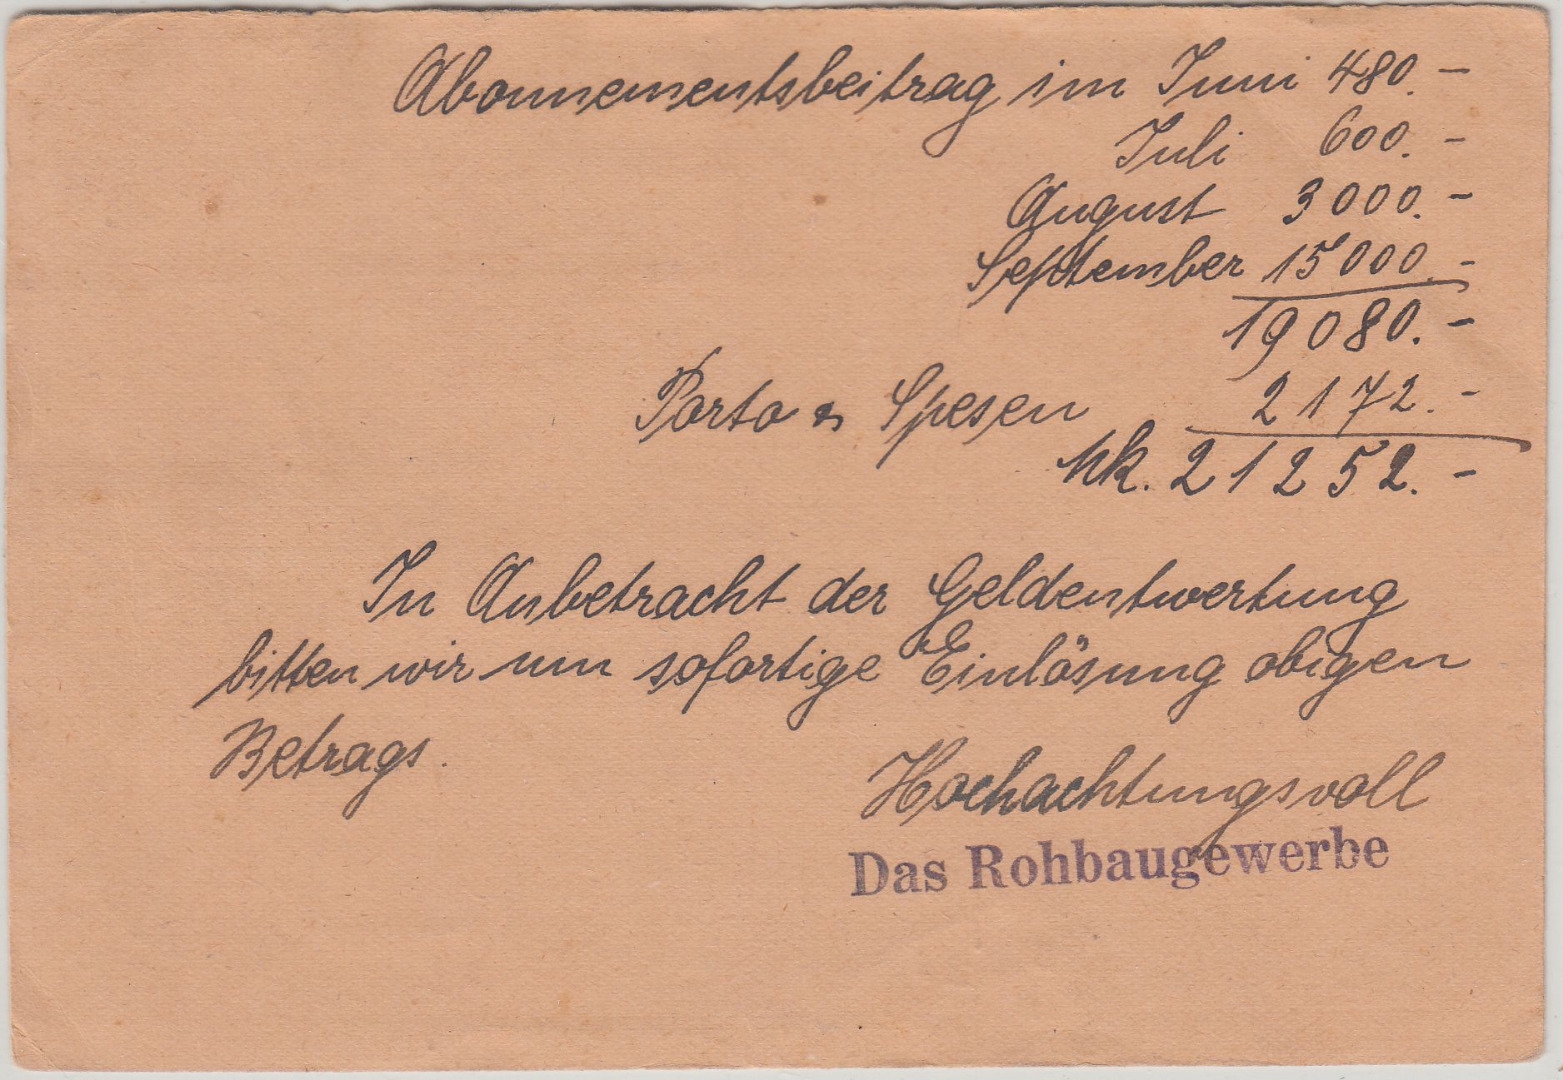 Abonnementsbeitrag im Juni 480.-
Juli 600.-
August 3000.-
September 15000.-
19080.-
Porto & Spesen 2172.-
Mk. 21252.-
In Anbetracht der Geldentwertung
bitten wir um sofortige Einlösung obigen
Betrags.
Hochachtungsvoll
Das Rohbaugewerbe